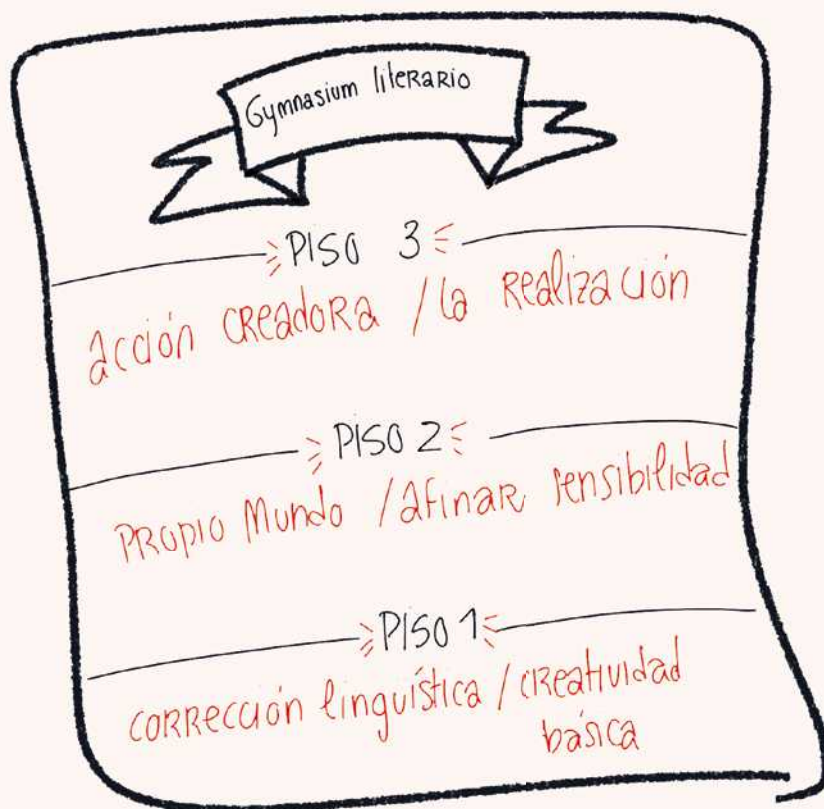 Gymnasium literario
PISO 3
acción creadora / la realización
PISO 2
Propio Mundo / afinar sensibilidad
PISO 1
corrección linguística / creatividad
básica